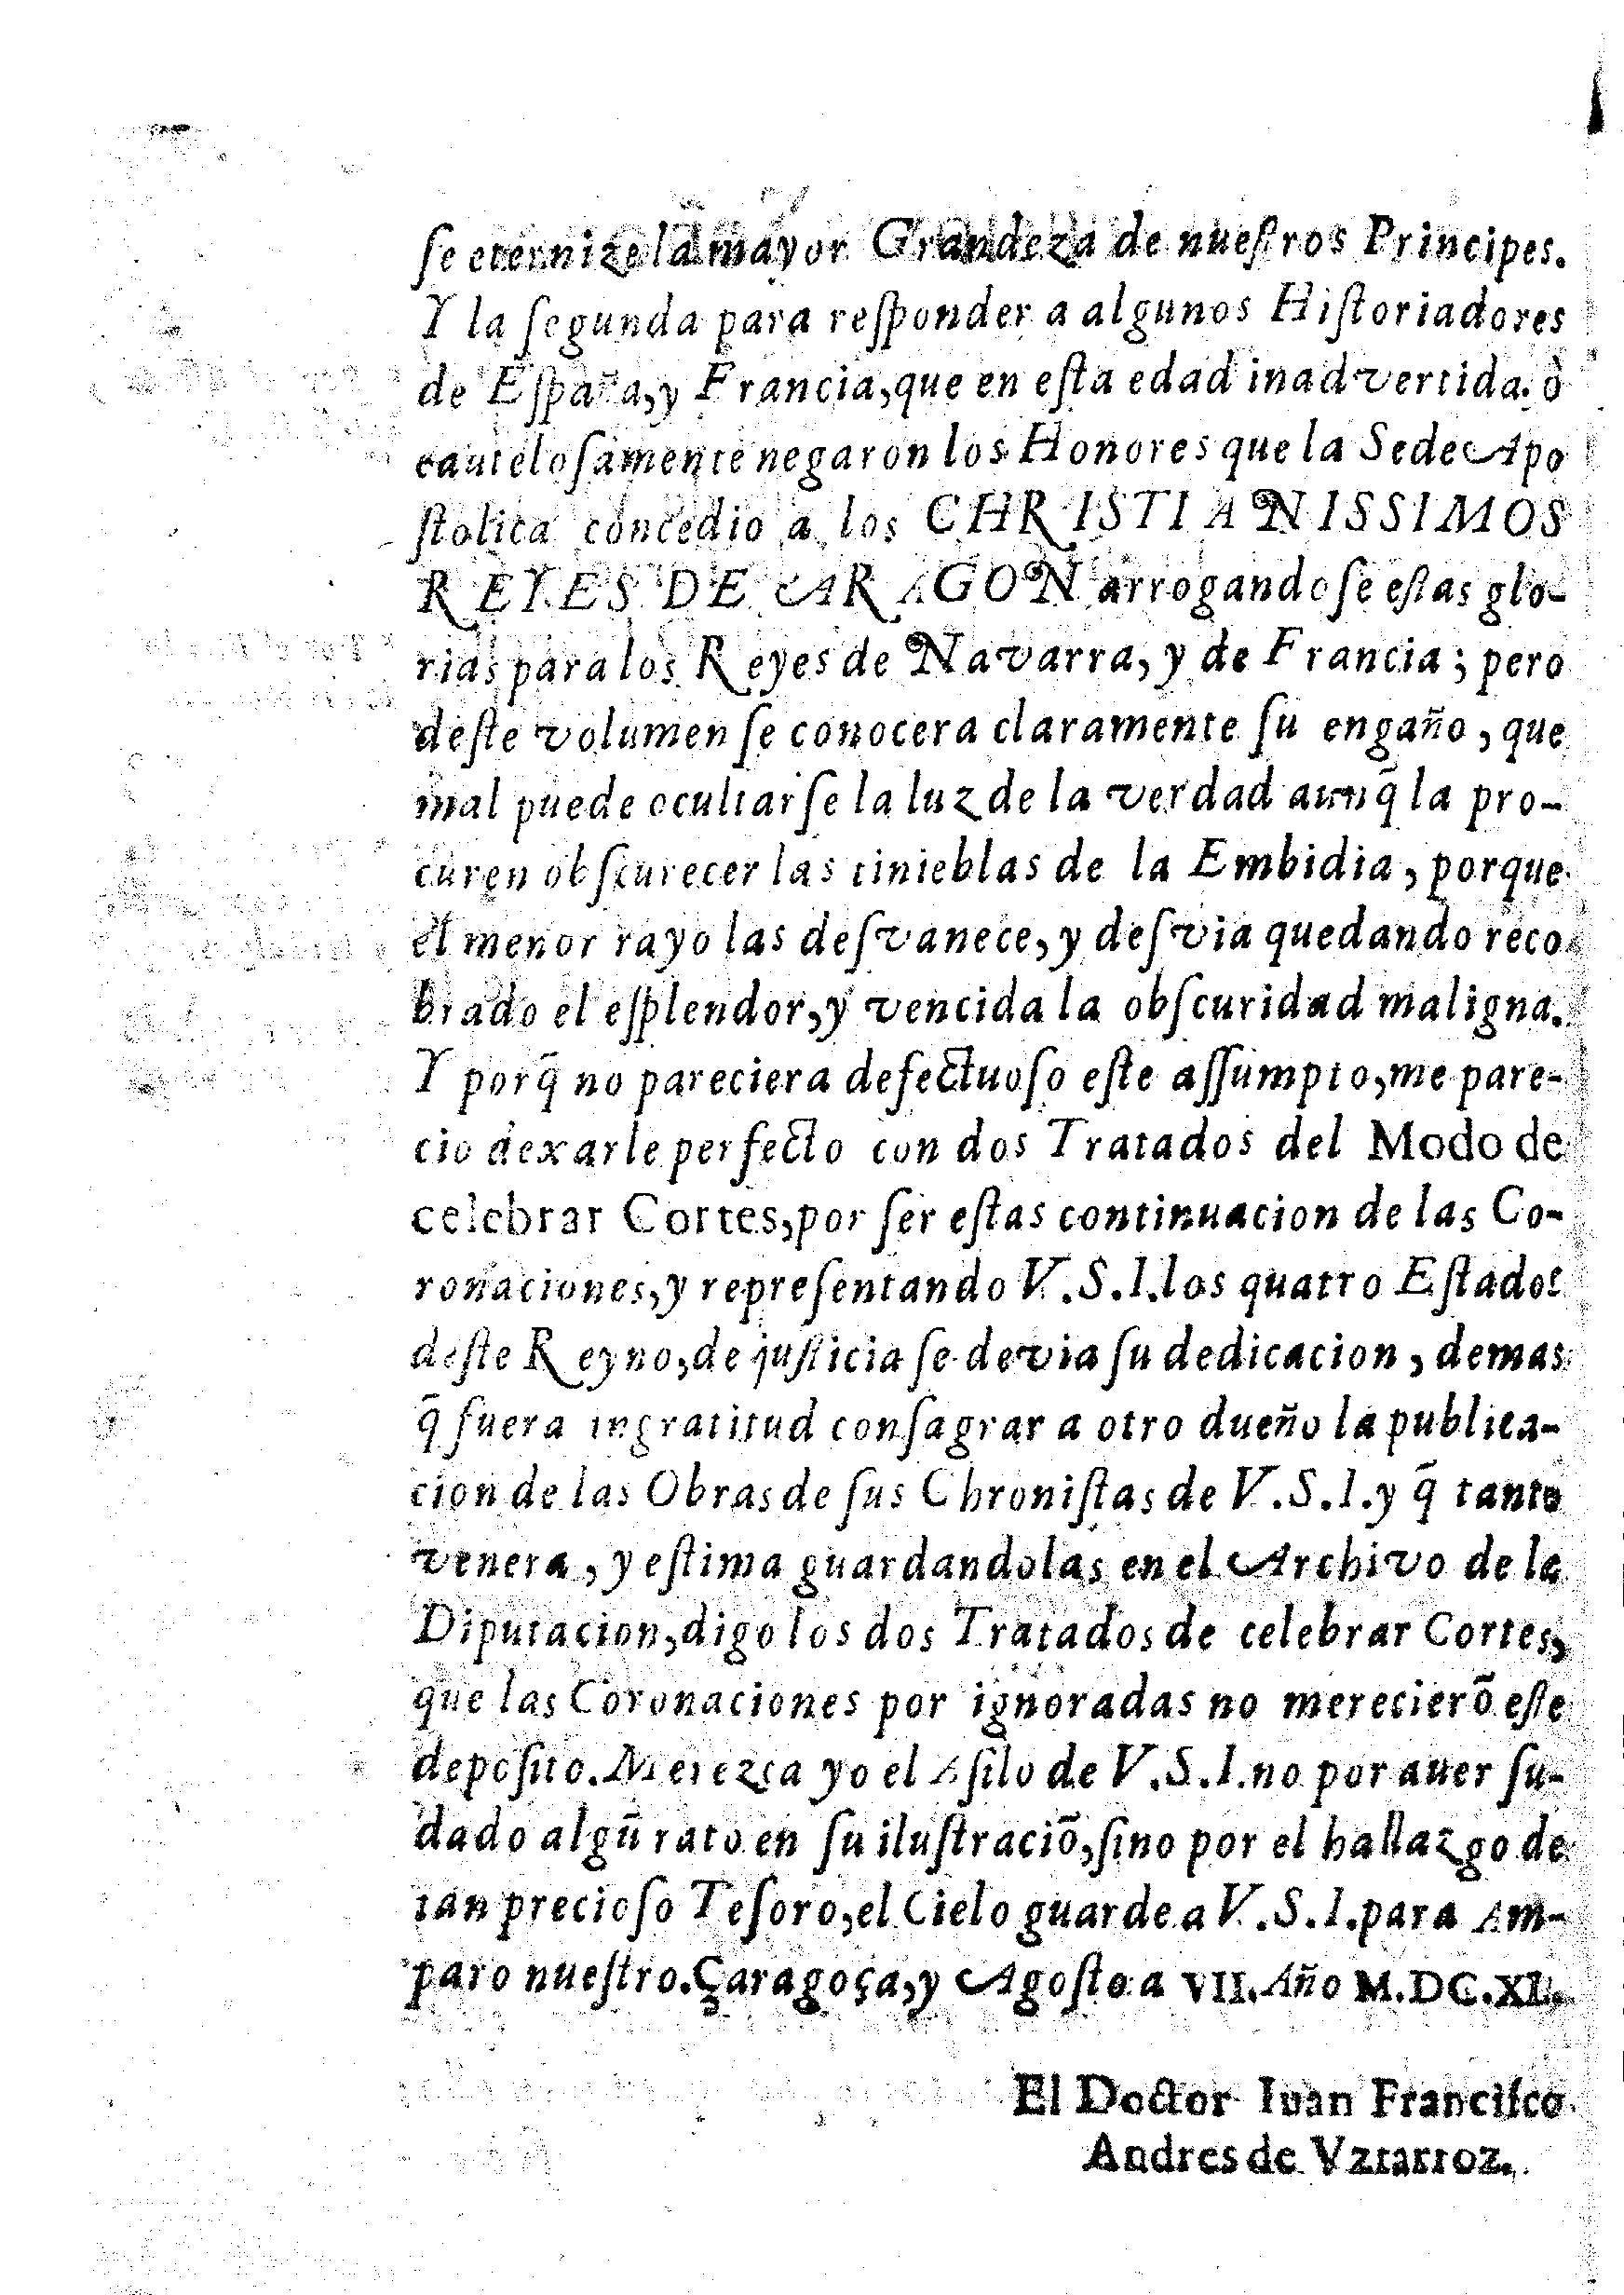 ſe eternize la mayor Grandeza de nueſtros Principes.
Y la ſegunda para reſponder a algunos Hiſtoriadores
de Eſpaña, y Francia, que en eſta edad inadvertida. ò
cautelosamente negaron los Honores que la Sede Apo
ſtolica concedio a los CHRISTIANISSIMOS
REYES DE ARAGON arrogandoſe eſtas glo-
rias para los Reyes de Navarra, y de Francia; pero
deſte volumen ſe conocera claramente ſu engaño, que
mal puede ocultarſe la luz de la verdad aunq̃ la pro-
curen obſcurecer las tinieblas de la Embidia, porque
el menor rayo las deſvanece, y deſvia quedando reco
brado el eſplendor, y vencida la obſcuridad maligna.
Y porq̃ no pareciera defectuoſo eſte aſſumpto, me pare-
cio dexarle perfecto con dos Tratados del Modo de
celebrar Cortes, por ſer eſtas continuacion de las Co-
ronaciones, y repreſentando V.S.I. los quatro Eſtados
deſte Reyno, de juſticia ſe devia ſu dedicacion, demas
q̃ fuera ingratitud conſagrar a otro dueño la publica-
cion de las Obras de ſus Chroniſtas de V.S.I. y q̃ tanto
venera, y eſtima guardandolas en el Archivo de la
Diputacion, digo los dos Tratados de celebrar Cortes,
que las Coronaciones por ignoradas no merecierõ eſte
depoſito. Merezca yo el Aſilo de V.S.I. no por auer ſu-
dado algũ rato en ſu iluſtraciõ, ſino por el hallazgo de
tan precioſo Teſoro, el Cielo guarde a V.S.I. para Am-
paro nueſtro. Çaragoça, y Agoſto a VII. Año M.DC.XLI.
El Doctor Iuan Franciſco
Andres de Vztarroz.